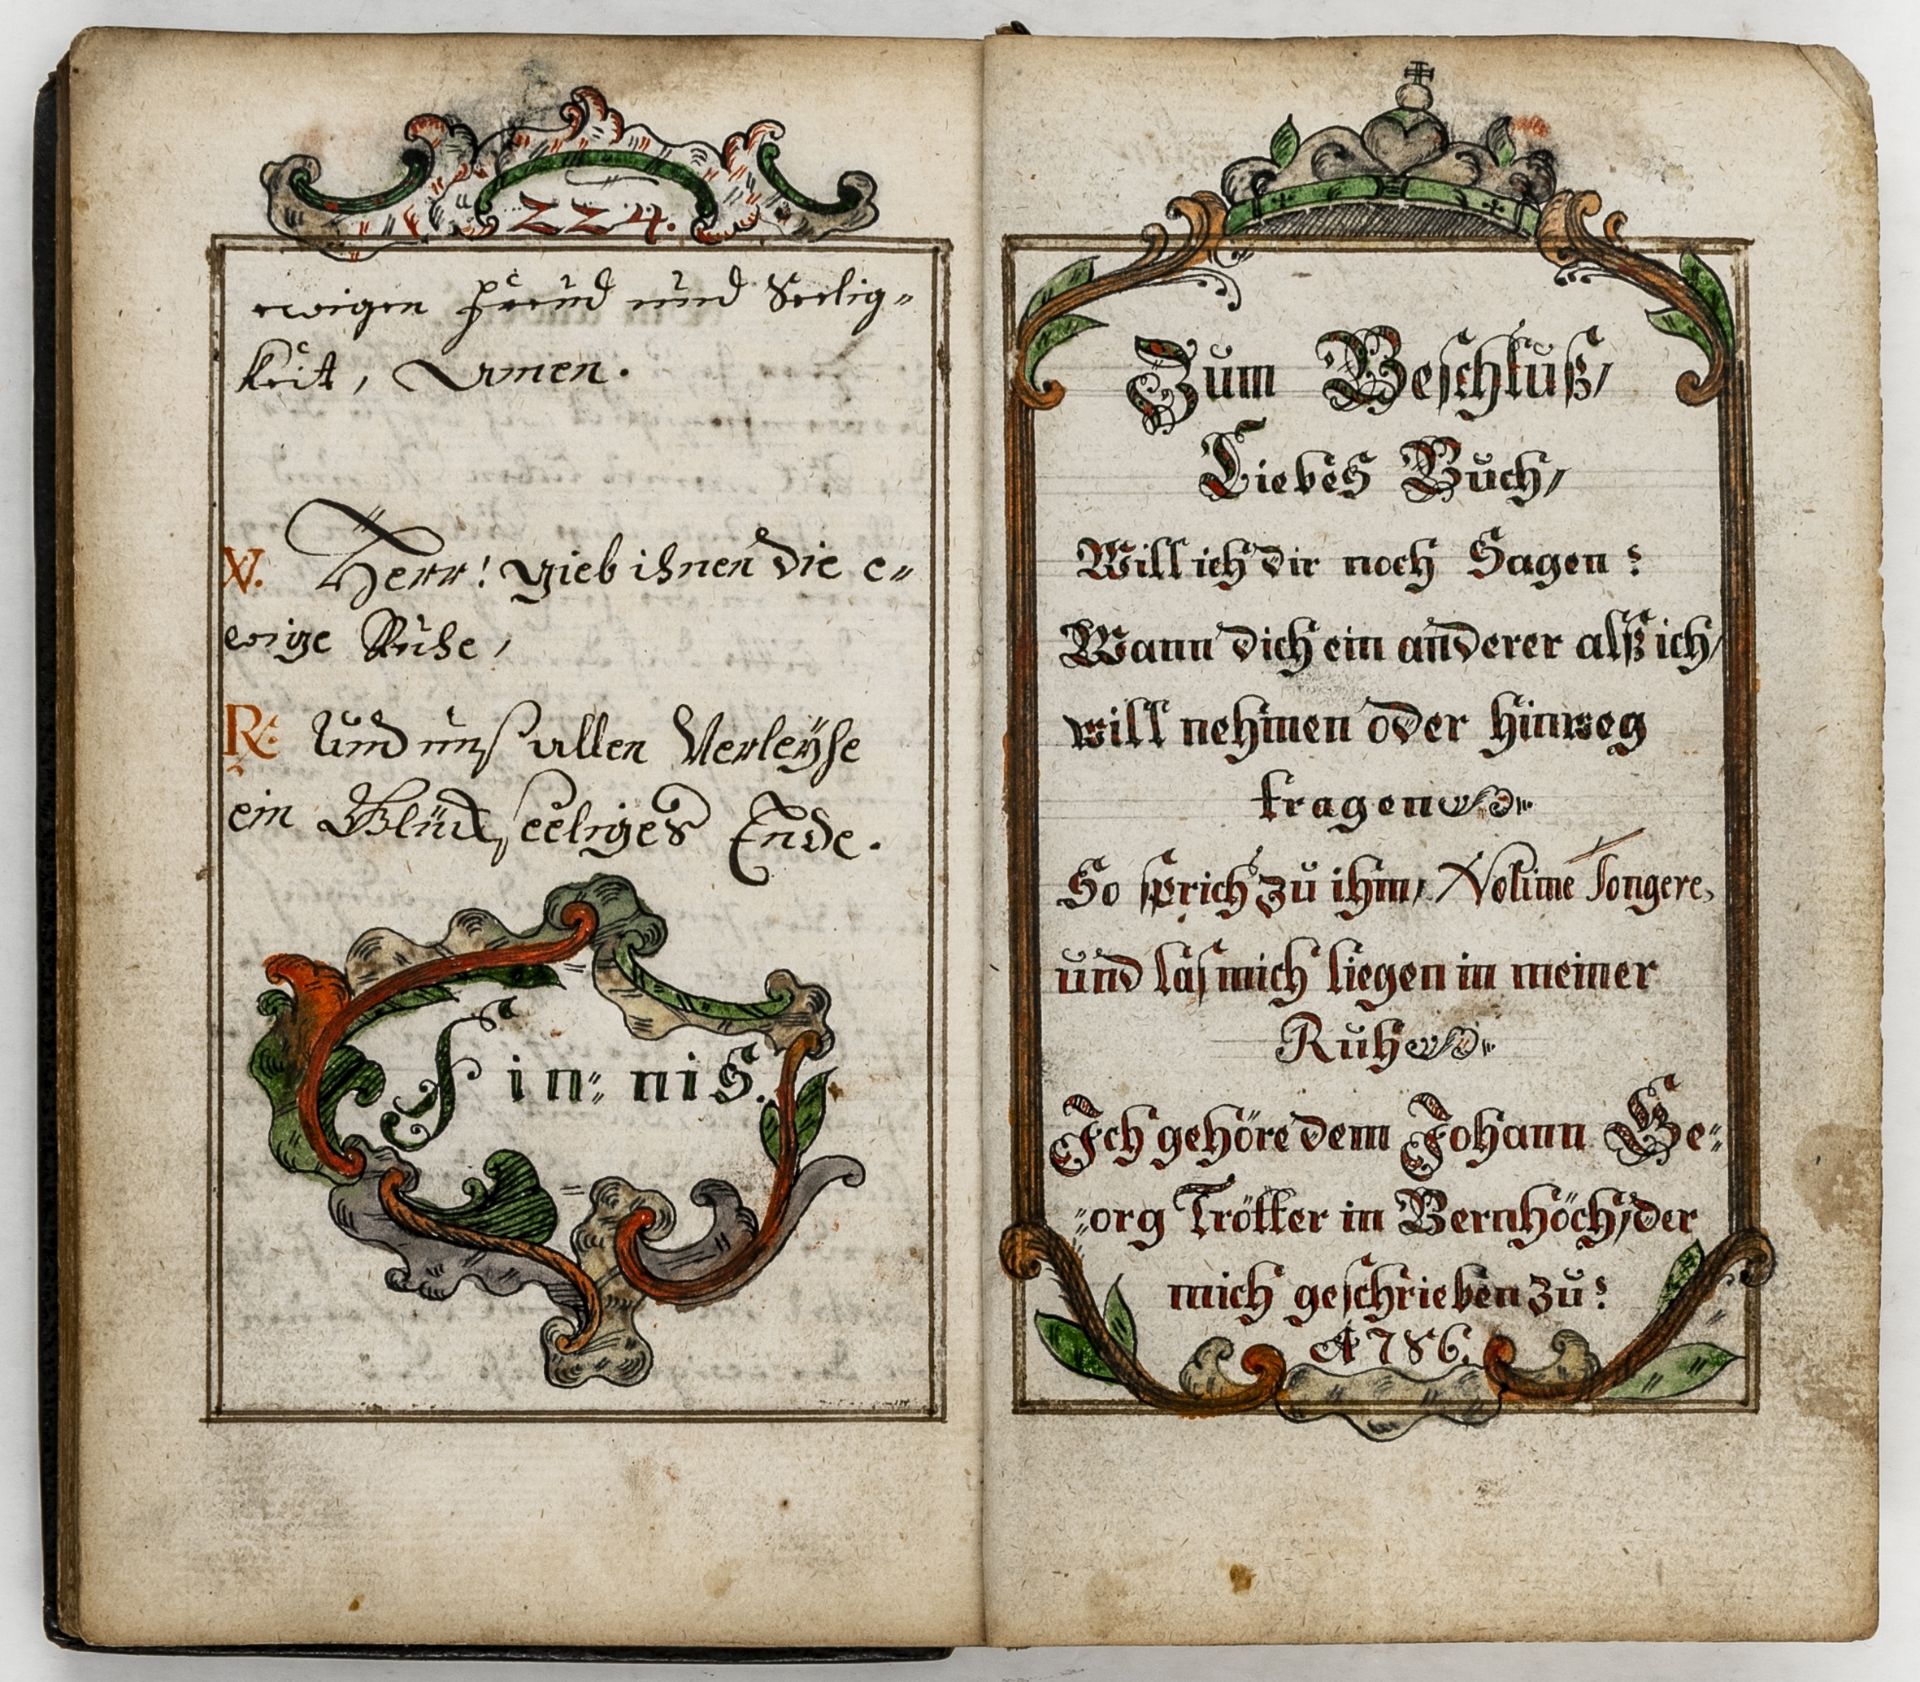 224.
ewigen Freud und Seelig=
keit, Amen.
V. Herr! gieb ihnen die e=
wige Ruhe,
R: Und unß allen Verleÿhe
ein Glückseeliges Ende.
Fin= nis.
Zum Beschluß,
Liebes Buch,
Will ich dir noch Sagen:
Wann dich ein anderer alß ich,
will nehmen oder hinweg
tragen
So sprich zu ihm, Nolime Tongere,
und las mich liegen in meiner
Ruhe
Ich gehöre dem Johann Ge=
=org Trötter in Bernhöch, der
mich geschrieben zu:
A 786.